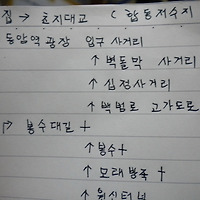 집 → 호지대교 ( 합동저수지
동암역 광장 입구 사거리
↑ 벽돌막 사거리
↑ 십정사거리
↑ 백범로 고가도로
봉수대길 +
↑ 봉수 +
↑ 모래방죽 +
↑ 원신터널